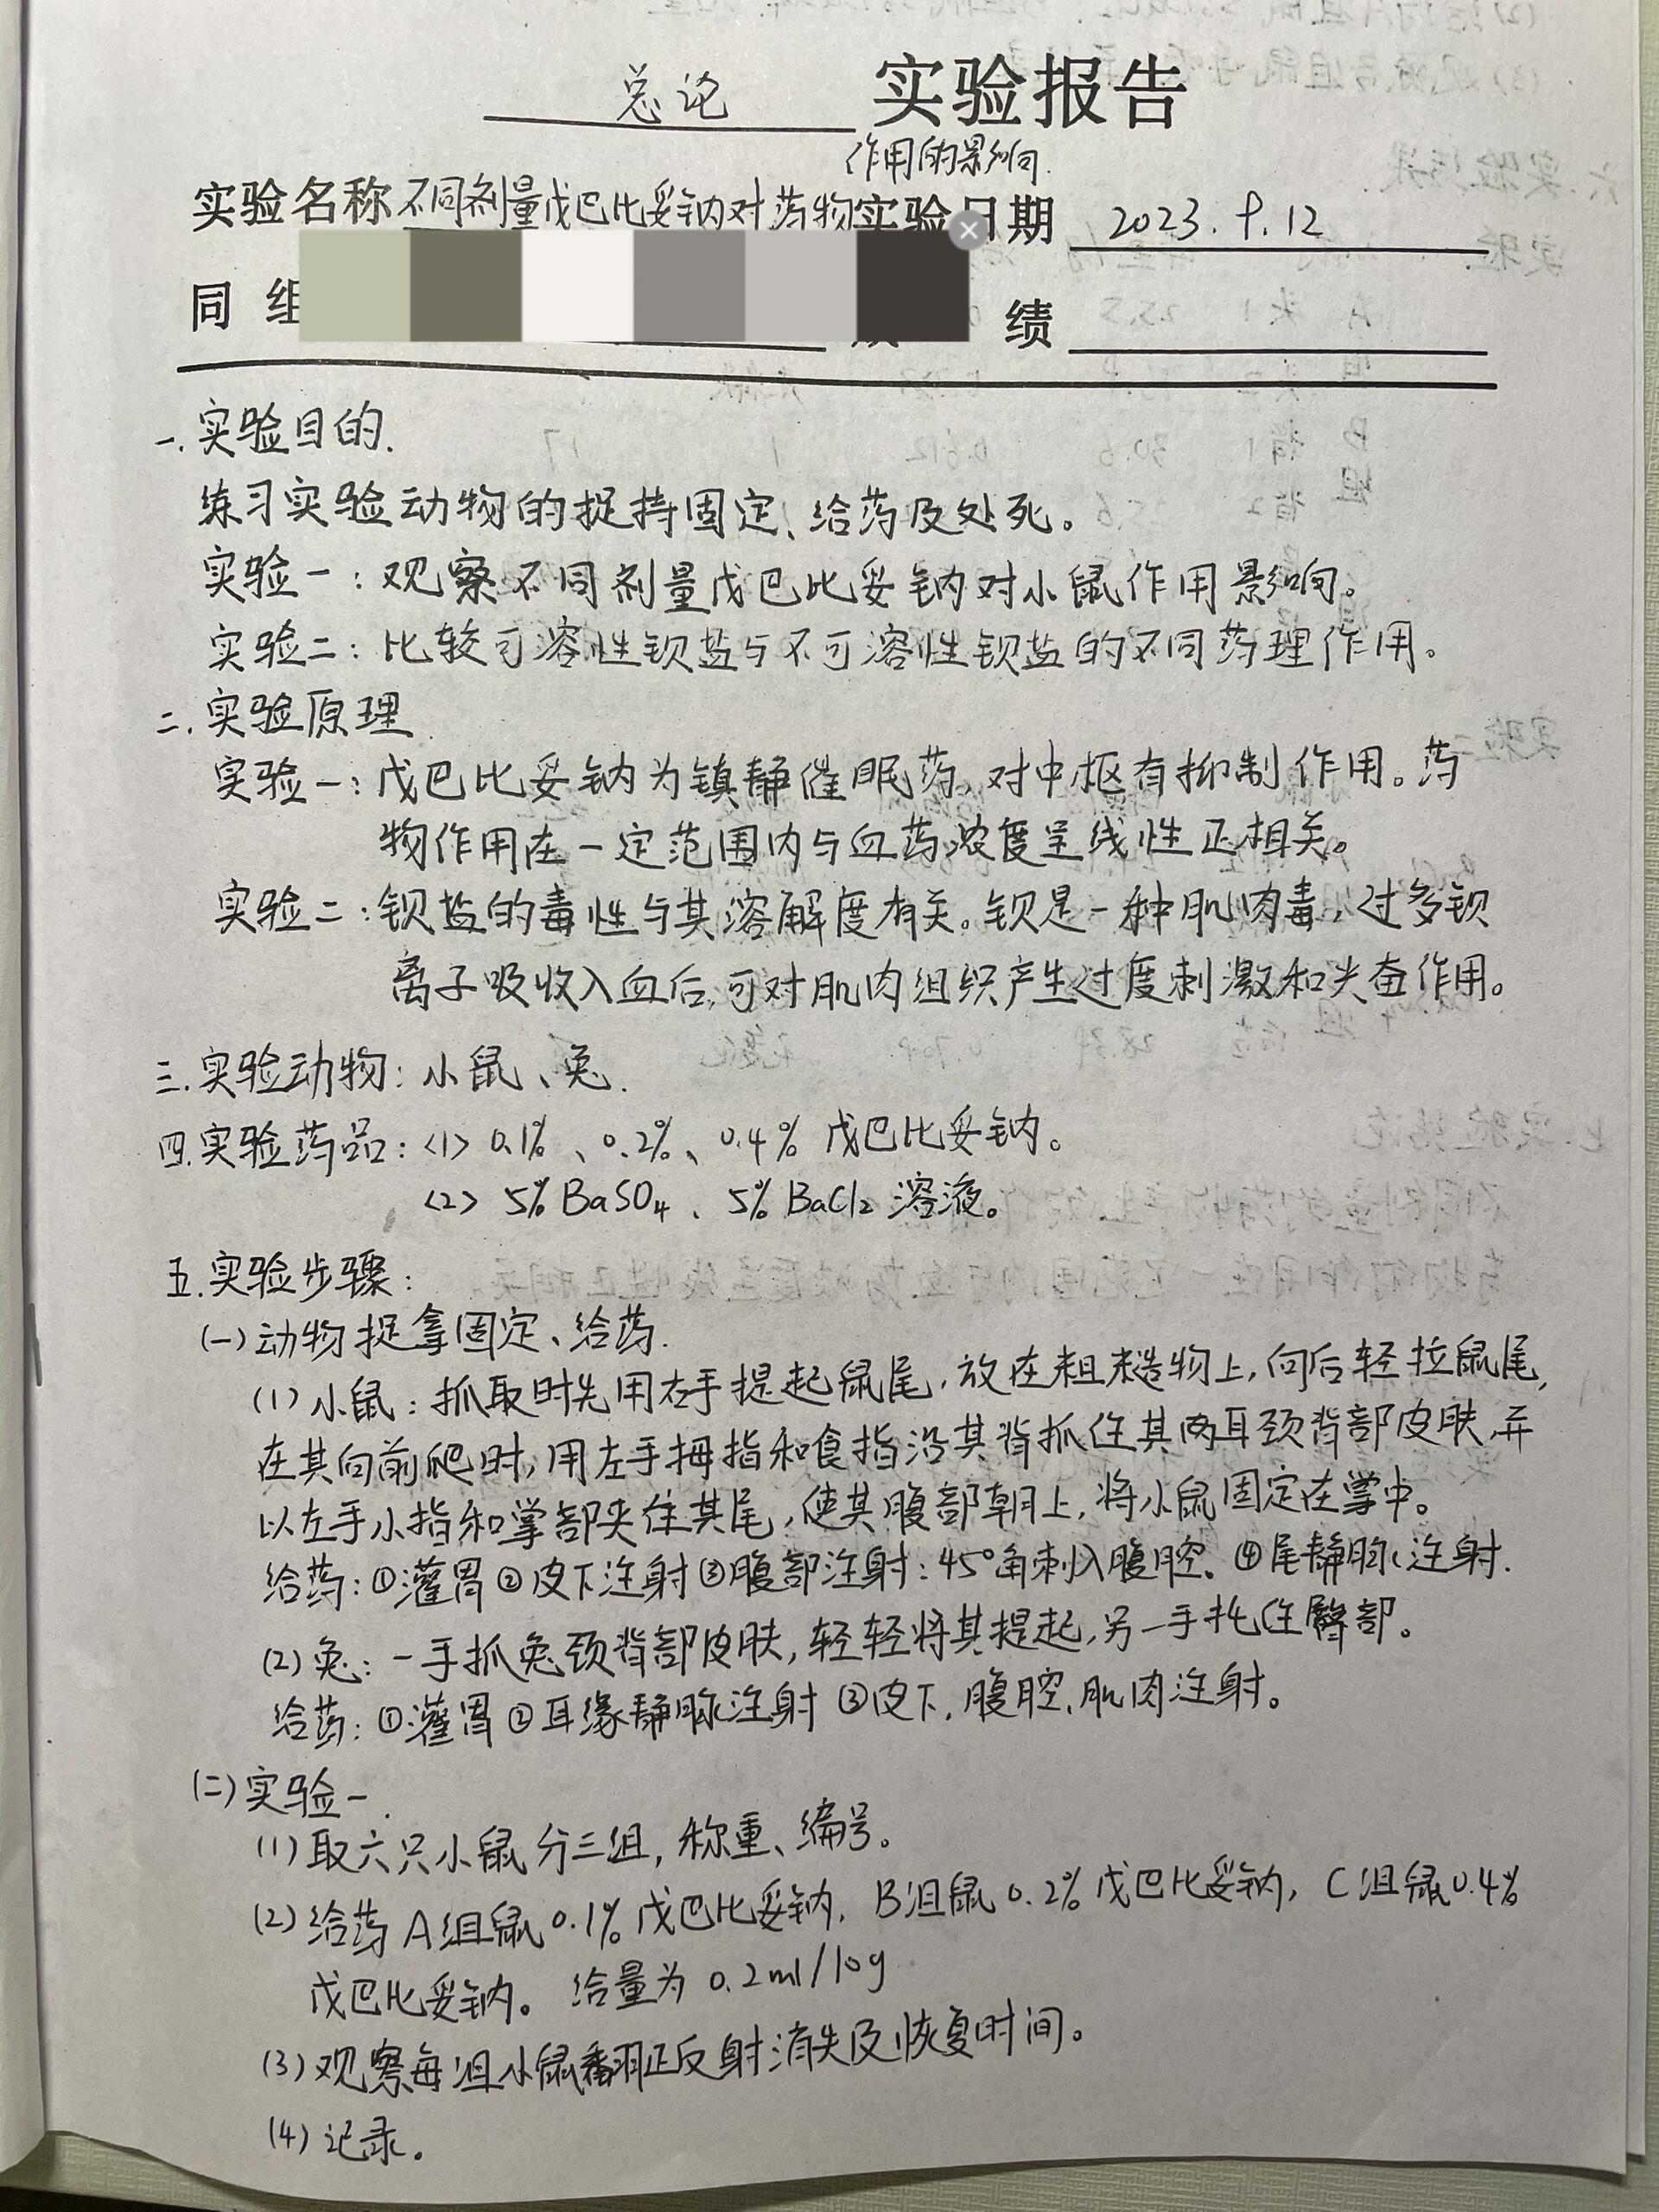 总论 实验报告
作用的影响
实验名称 不同剂量戊巴比妥钠对药物 实验日期 2023.9.12
同 组 绩
一.实验目的.
练习实验动物的捉持固定、给药及处死。
实验一:观察不同剂量戊巴比妥钠对小鼠作用影响。
实验二:比较可溶性钡盐与不可溶性钡盐的不同药理作用。
二.实验原理
实验一:戊巴比妥钠为镇静催眠药,对中枢有抑制作用。药
物作用在一定范围内与血药浓度呈线性正相关。
实验二:钡盐的毒性与其溶解度有关。钡是一种肌肉毒,过多钡
离子吸收入血后,可对肌肉组织产生过度刺激和兴奋作用。
三.实验动物:小鼠、兔.
四.实验药品:<1> 0.1%、0.2%、0.4% 戊巴比妥钠。
<2> 5% BaSO₄、5% BaCl₂ 溶液。
五.实验步骤:
(一)动物捉拿固定、给药.
(1)小鼠:抓取时先用右手提起鼠尾,放在粗糙物上,向后轻拉鼠尾,
在其向前爬时,用左手拇指和食指沿其背抓住其两耳颈背部皮肤,并
以左手小指和掌部夹住其尾,使其腹部朝上,将小鼠固定在掌中。
给药:①灌胃②皮下注射③腹部注射:45°角刺入腹腔。④尾静脉注射.
(2)兔:一手抓兔颈背部皮肤,轻轻将其提起,另一手托住臀部。
给药:①灌胃②耳缘静脉注射 ③皮下,腹腔,肌肉注射。
(二)实验一.
(1)取六只小鼠分三组,称重、编号。
(2)给药 A组鼠0.1% 戊巴比妥钠,B组鼠0.2% 戊巴比妥钠,C组鼠0.4%
戊巴比妥钠。给量为0.2ml/10g
(3)观察每组小鼠翻正反射消失及恢复时间。
(4)记录。